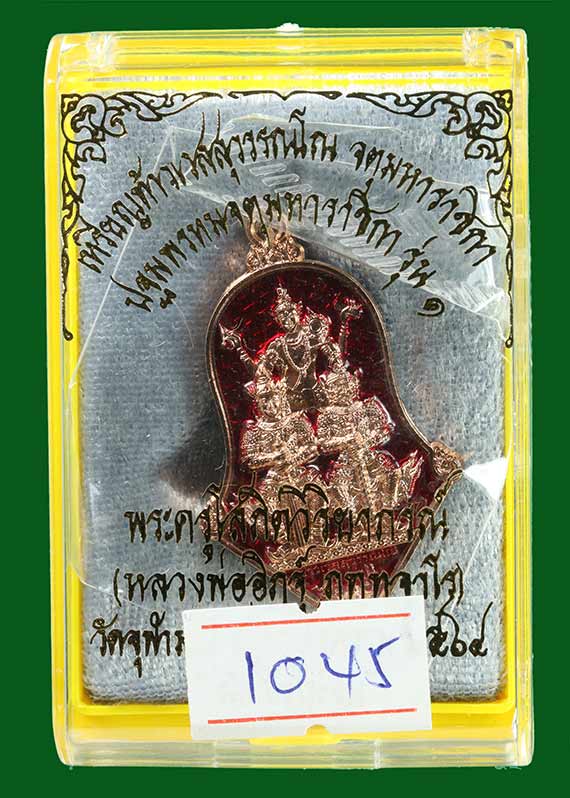 เหรียญท้าวเวสสุวรรณโณ จตุมหาราชิกา
ปฐมพรหมจตุมหาราชิกา รุ่น ๑
พระครูโสภิตวิริยาภรณ์
(หลวงพ่ออิฏฐ์ ภทฺทจาโร)
วัดจุฬา
๕๖๔
1045